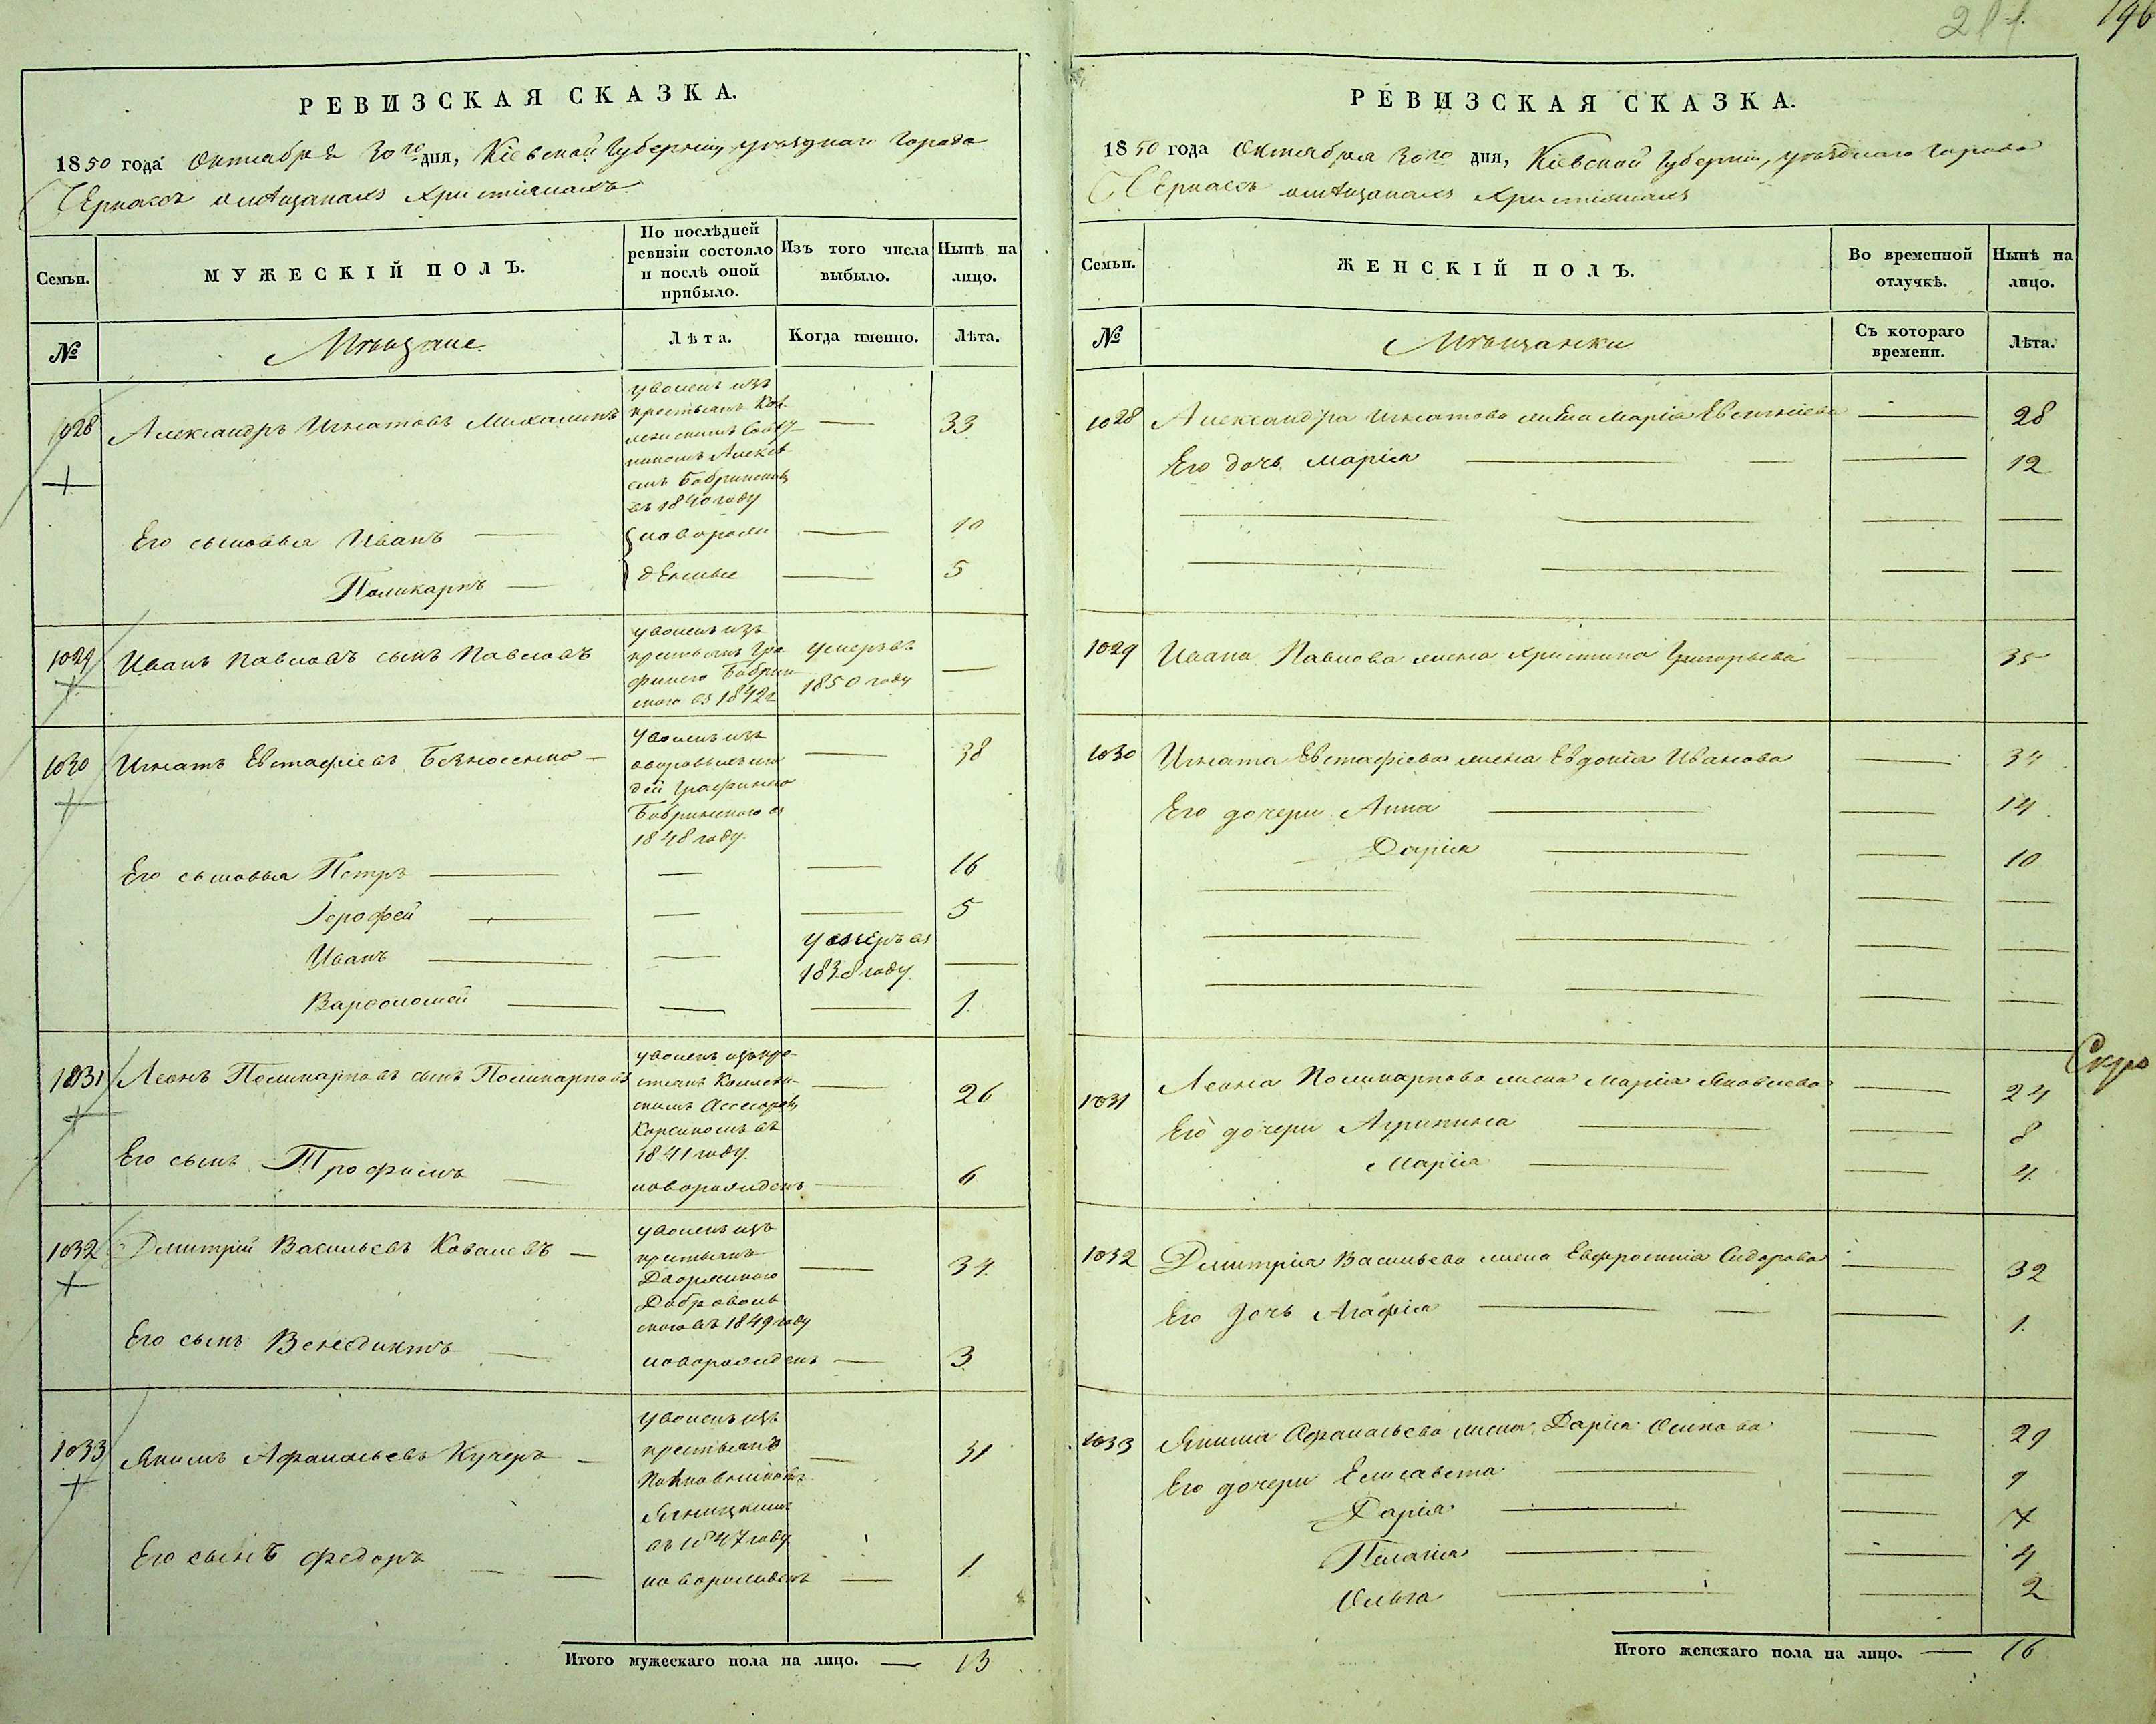 196
РЕВИЗСКАЯ СКАЗКА.
1850 года Октября 30го дня, Кіевской Губерніи, уѣзднаго города
Черкассъ о мѣщанахъ Христіанахъ
Семьи.
МУЖЕСКІЙ ПОЛЪ.
По послѣдней ревизіи состояло и послѣ оной прибыло.
Изъ того числа выбыло.
Нынѣ на лицо.
№
Мѣщане.
Лѣта.
Когда именно.
Лѣта.
1028
Александръ Игнатовъ
уволенъ изъ
крестьянъ
Алексѣ
емъ Бобринскимъ
въ 1840 году
33
Его сыновья Иванъ
новорож
10
Поликарпъ
денные
5
1029
Иванъ Павловъ сынъ Павловъ
уволенъ изъ
крестьянъ Гра
финею Бобрин
скою въ 1842 г
умеръ въ
1850 году
1030
Игнатъ Евстафіевъ Безносенко
уволенъ изъ
дворовыхъ лю
дей Графинею
Бобринскою въ
1848 году.
38
Его сыновья Петръ
16
Іерофей
5
Иванъ
умеръ въ
1838 году.
Варфоломей
1.
1031
Леонъ Поликарповъ сынъ Поликарповъ
уволенъ изъ кре
стьянъ Коллеж
скимъ Ассесоромъ
въ
1841 году.
26
Его сынъ Трофимъ
новорожденъ
6
1032
Дмитрій Васильевъ Ковалевъ
уволенъ изъ
крестьянъ
въ 1849 году
34.
Его сынъ Венедиктъ
новорожденъ
3.
1033
Якимъ Афанасьевъ Кучеръ
уволенъ изъ
крестьянъ
Полковникомъ
въ 1847 году
31
Его сынъ Федоръ
новорожденъ
1.
Итого мужескаго пола на лицо.
13
РЕВИЗСКАЯ СКАЗКА.
1850 года Октября 30го дня, Кіевской Губерніи, уѣзднаго города
Черкассъ о мѣщанахъ Христіанахъ
Семьи.
ЖЕНСКІЙ ПОЛЪ.
Во временной отлучкѣ.
Нынѣ на лицо.
№
Мѣщанки
Съ котораго времени.
Лѣта.
1028
Александра Игнатова жена Марія Евгеніева
28
Его дочь Марія
12
1029
Ивана Павлова жена Христина Григорьева
35
1030
Игната Евстафіева жена Евдокія Иванова
34
Его дочери Анна
14
Дарія
10
1031
Леона Поликарпова жена Марія Яковлева
24
Его дочери Агрипина
8
Марія
4.
1032
Дмитрія Васильева жена Евфросинія Сидорова
32
Его дочь Агафія
1.
1033
Якима Афанасьева жена Дарія Осипова
29
Его дочери Елисавета
9
Дарія
7
Пелагія
4
Ольга
2
Итого женскаго пола на лицо.
16